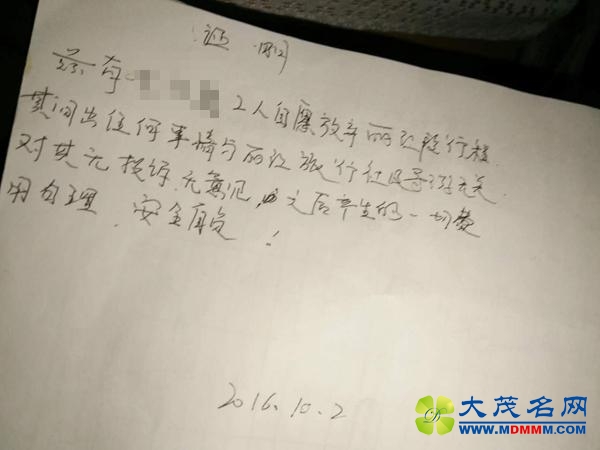 证明
兹有 2人自愿放弃丽江段行程.
其间出任何事情与丽江旅行社及导游无关.
对其无投诉.无意见,之后产生的一切费
用自理.安全自负!
2016.10.2
大茂名网
WWW.MDMMM.COM